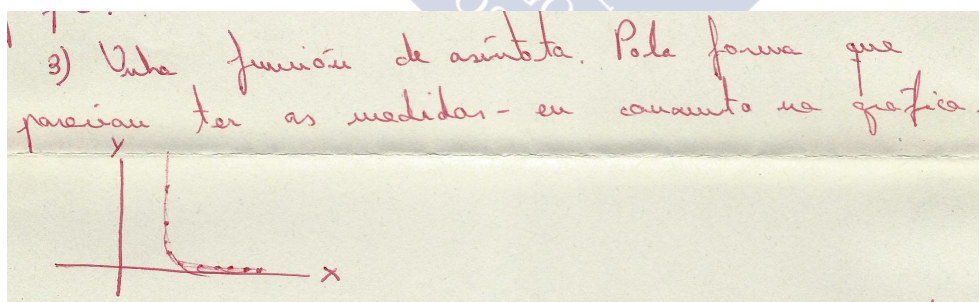 3) Unha función de asíntota. Pola forma que
parecían ter as medidas - en conxunto na gráfica
y
x